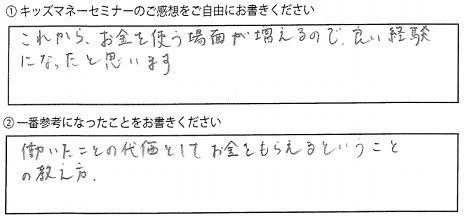 ① キッズマネーセミナーのご感想をご自由にお書きください
これから、お金を使う場面が増えるので、良い経験
になったと思います
② 一番参考になったことをお書きください
働いたことの代価としてお金をもらえるということ
の教え方.